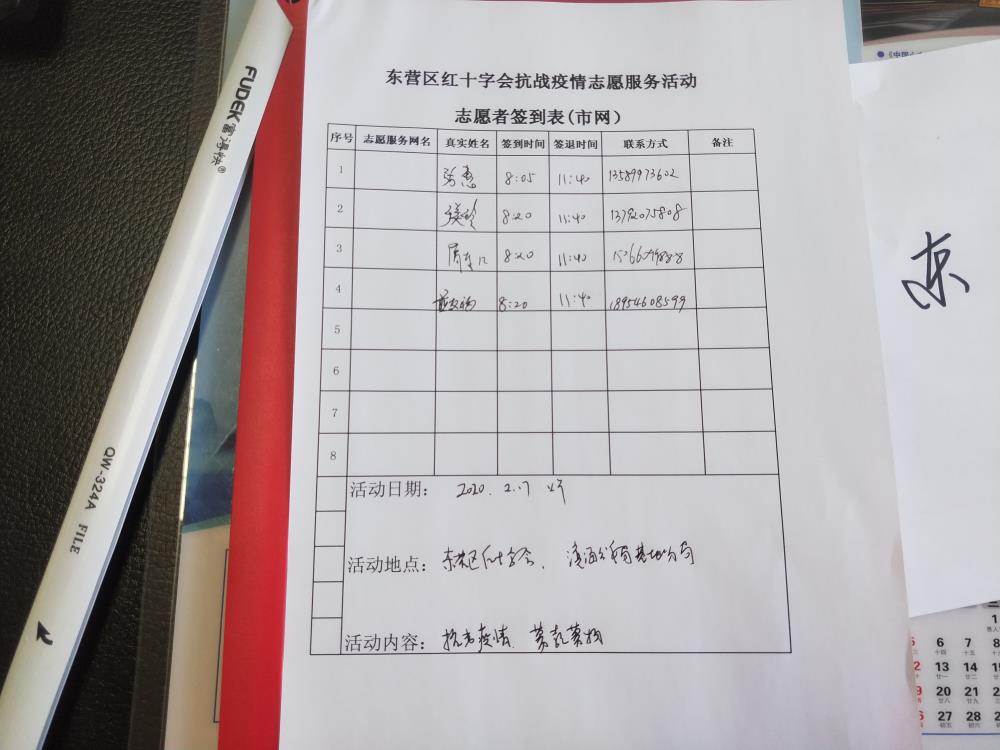 东营区红十字会抗战疫情志愿服务活动
志愿者签到表(市网)
序号 志愿服务网名 真实姓名 签到时间 签退时间 联系方式 备注
1 8:05 11:40 13589973602
2 8:20 11:40
3 8:20 11:40
4 8:20 11:40 18954608599
5
6
7
8
活动日期: 2020. 2.17
活动地点: 东营区红十字会、
活动内容: 抗击疫情、募款募物
FUDEK富得快®
QW-324A FILE
东
6 7 8
13 14 15
20 21
27 28